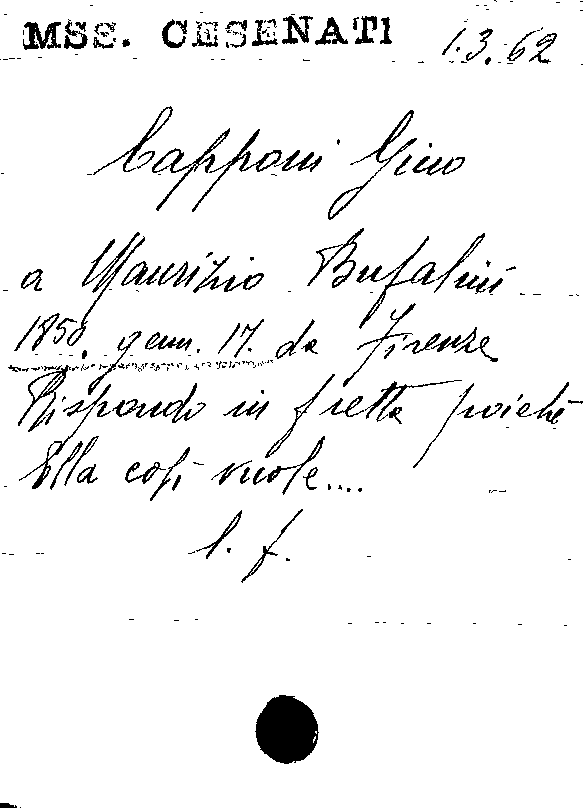 MSS. CESENATI 1.3.62
Capponi Gino
a Maurizio Bufalini
1850. genn. 17. da Firenze
Rispondo in fretta poichè
Ella così vuole....
l. f.